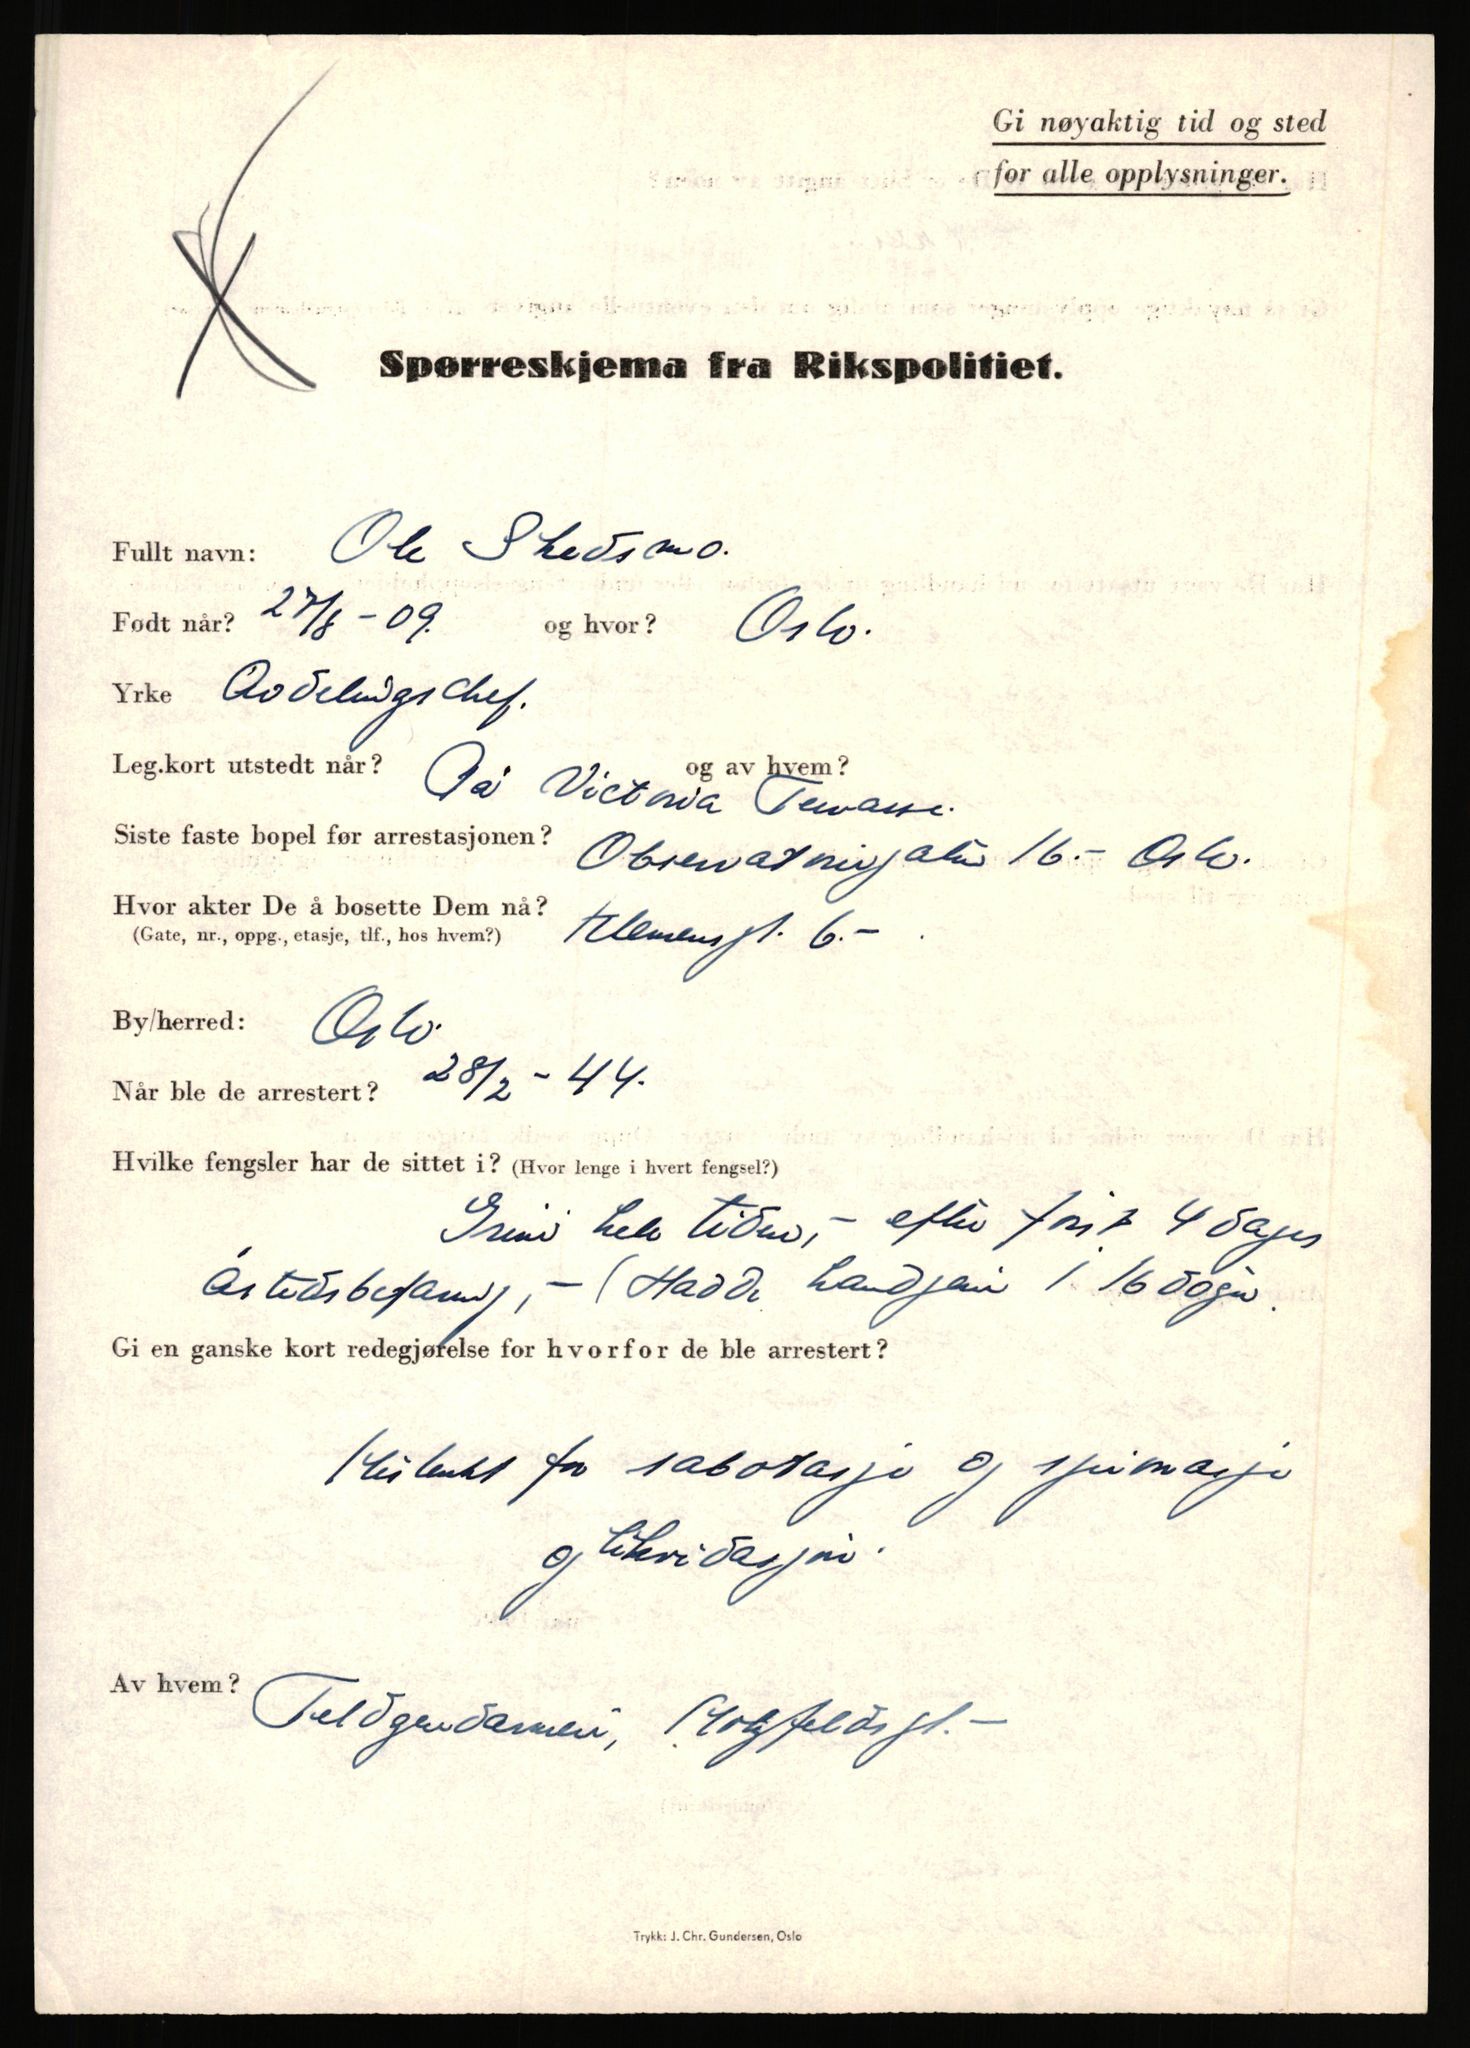 Gi nøyaktig tid og sted
for alle opplysninger.
Spørreskjema fra Rikspolitiet.
Fullt navn: Ole Skedsmo.
Født når? 27/8 - 09. og hvor? Oslo.
Yrke Avdelingschef.
Leg.kort utstedt når? På Victoria Terrasse. og av hvem?
Siste faste bopel før arrestasjonen? Observatoriegaten 16.- Oslo.
Hvor akter De å bosette Dem nå? Klemensgt. 6.-
(Gate, nr., oppg., etasje, tlf., hos hvem?)
By/herred: Oslo.
Når ble de arrestert? 28/2 - 44.
Hvilke fengsler har de sittet i? (Hvor lenge i hvert fengsel?)
Grini hele tiden, - efter først 4 dages
Åstedsbefaring, - (Hadde handjern i 16 døgn.
Gi en ganske kort redegjørelse for hvorfor de ble arrestert?
Mistenkt for sabotasje og spionasje
og likvidasjon.
Av hvem? Feldgendarmeri, Holtfeldsgt. -
Trykk: J. Chr. Gundersen, Oslo